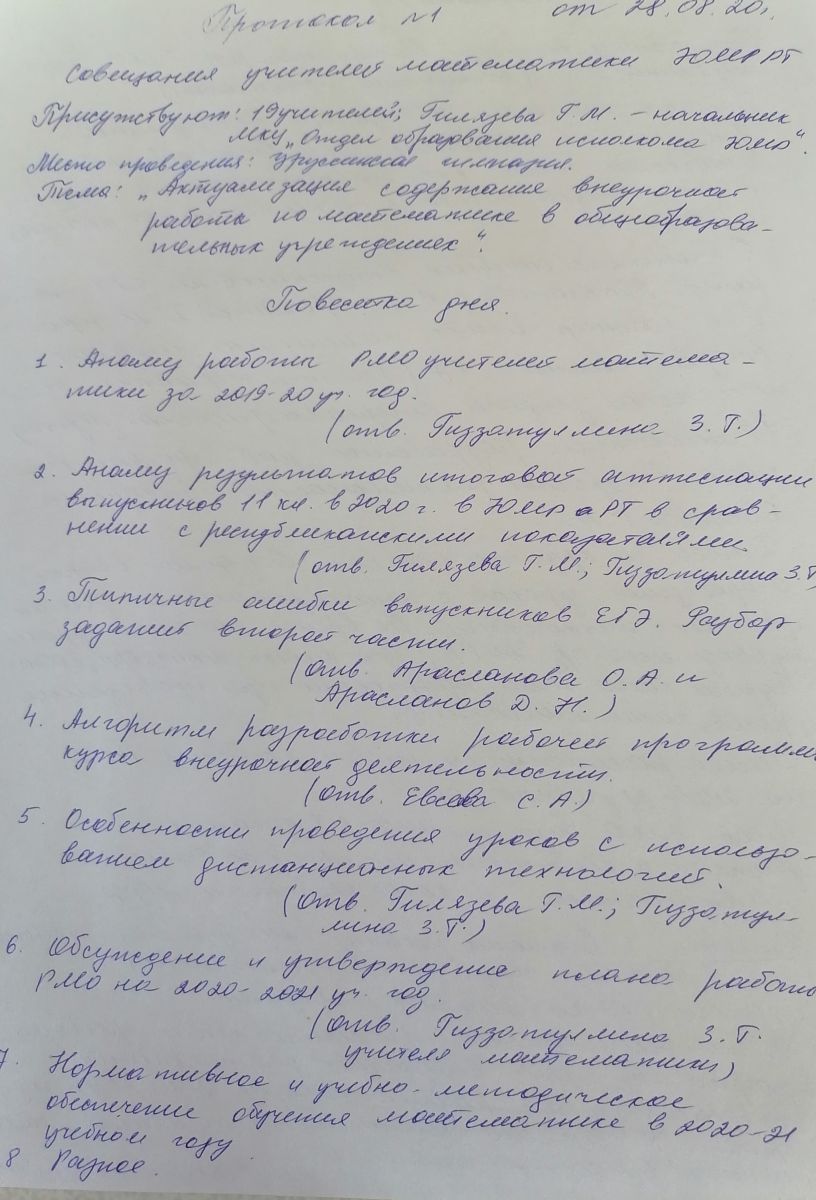 Протокол №1 от 28.08.20г.
Совещания учителей математики ЮМР РТ
Присутствуют: 19 учителей; Гилязева Г.М. – начальник
МКУ „Отдел образования исполкома ЮМР“.
Место проведения: Уруссинская гимназия.
Тема: „Актуализация содержания внеурочной
работы по математике в общеобразова-
тельных учреждениях“.
Повестка дня.
1. Анализ работы РМО учителей матема-
тики за 2019-20 уч. год.
(отв. Гиззатуллина З.Т.)
2. Анализ результатов итоговой аттестации
выпускников 11 кл. в 2020 г. в ЮМР РТ в срав-
нении с республиканскими показателями.
(отв. Гилязева Г.М.; Гиззатуллина З.Т)
3. Типичные ошибки выпускников ЕГЭ. Разбор
заданий второй части.
(отв. Арасланова О.А. и
Арасланов Д.Н.)
4. Алгоритм разработки рабочей программы
курса внеурочной деятельности.
(отв. Евсеева С.А.)
5. Особенности проведения уроков с использо-
ванием дистанционных технологий.
(отв. Гилязева Г.М.; Гиззатул-
лина З.Т.)
6. Обсуждение и утверждение плана работы
РМО на 2020-2021 уч. год.
(отв. Гиззатуллина З.Т.
учителя математики)
7. Нормативное и учебно-методическое
обеспечение обучения математике в 2020-21
учебном году
8 Разное.